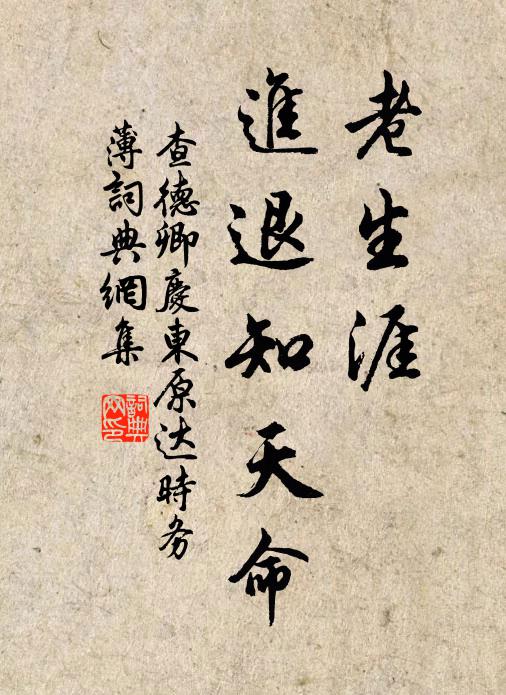 老生涯
進退知天命
查德卿慶東原达時务
薄詞典網集
詞典网印